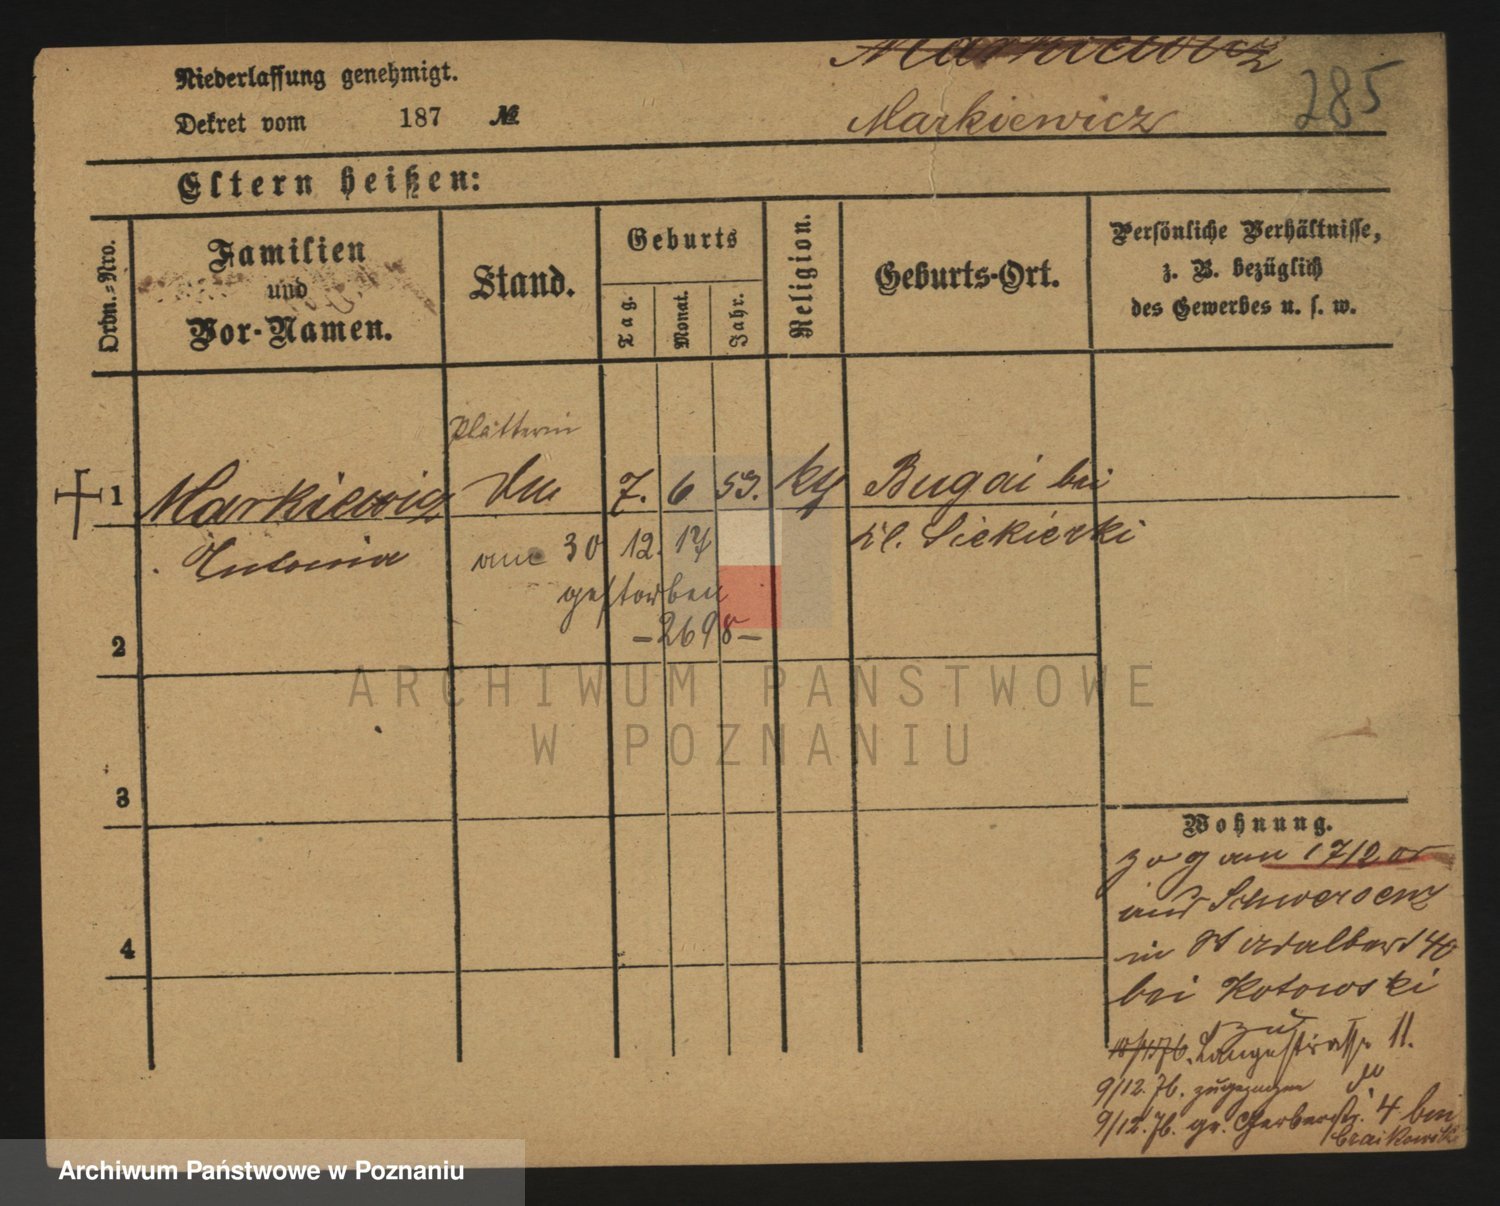 Niederlassung genehmigt.
Dekret vom 187 №.
Markiewicz
Markiewicz
285
Eltern heißen:
Ordn.-Nro.
Familien
und
Vor-Namen.
Stand.
Geburts
Tag.
Monat.
Jahr.
Religion.
Geburts-Ort.
Persönliche Verhältnisse,
z. B. bezüglich
des Gewerbes u. s. w.
Plätterin
1 Markiewicz 7. 6 53. Bugai bei
Antonia
Kl. Siekierki
am 30 12. 17
gestorben
-2698-
2
3
4
Wohnung.
zog am 17/2 cr
aus Schwersenz
in St Adalbert 40
bei Kotowski
zu
Langestrasse 11.
9/12. 76. zugezogen
9/12. 76. gr. Gerberstr. 4 bei
ARCHIWUM PAŃSTWOWE
W POZNANIU
Archiwum Państwowe w Poznaniu